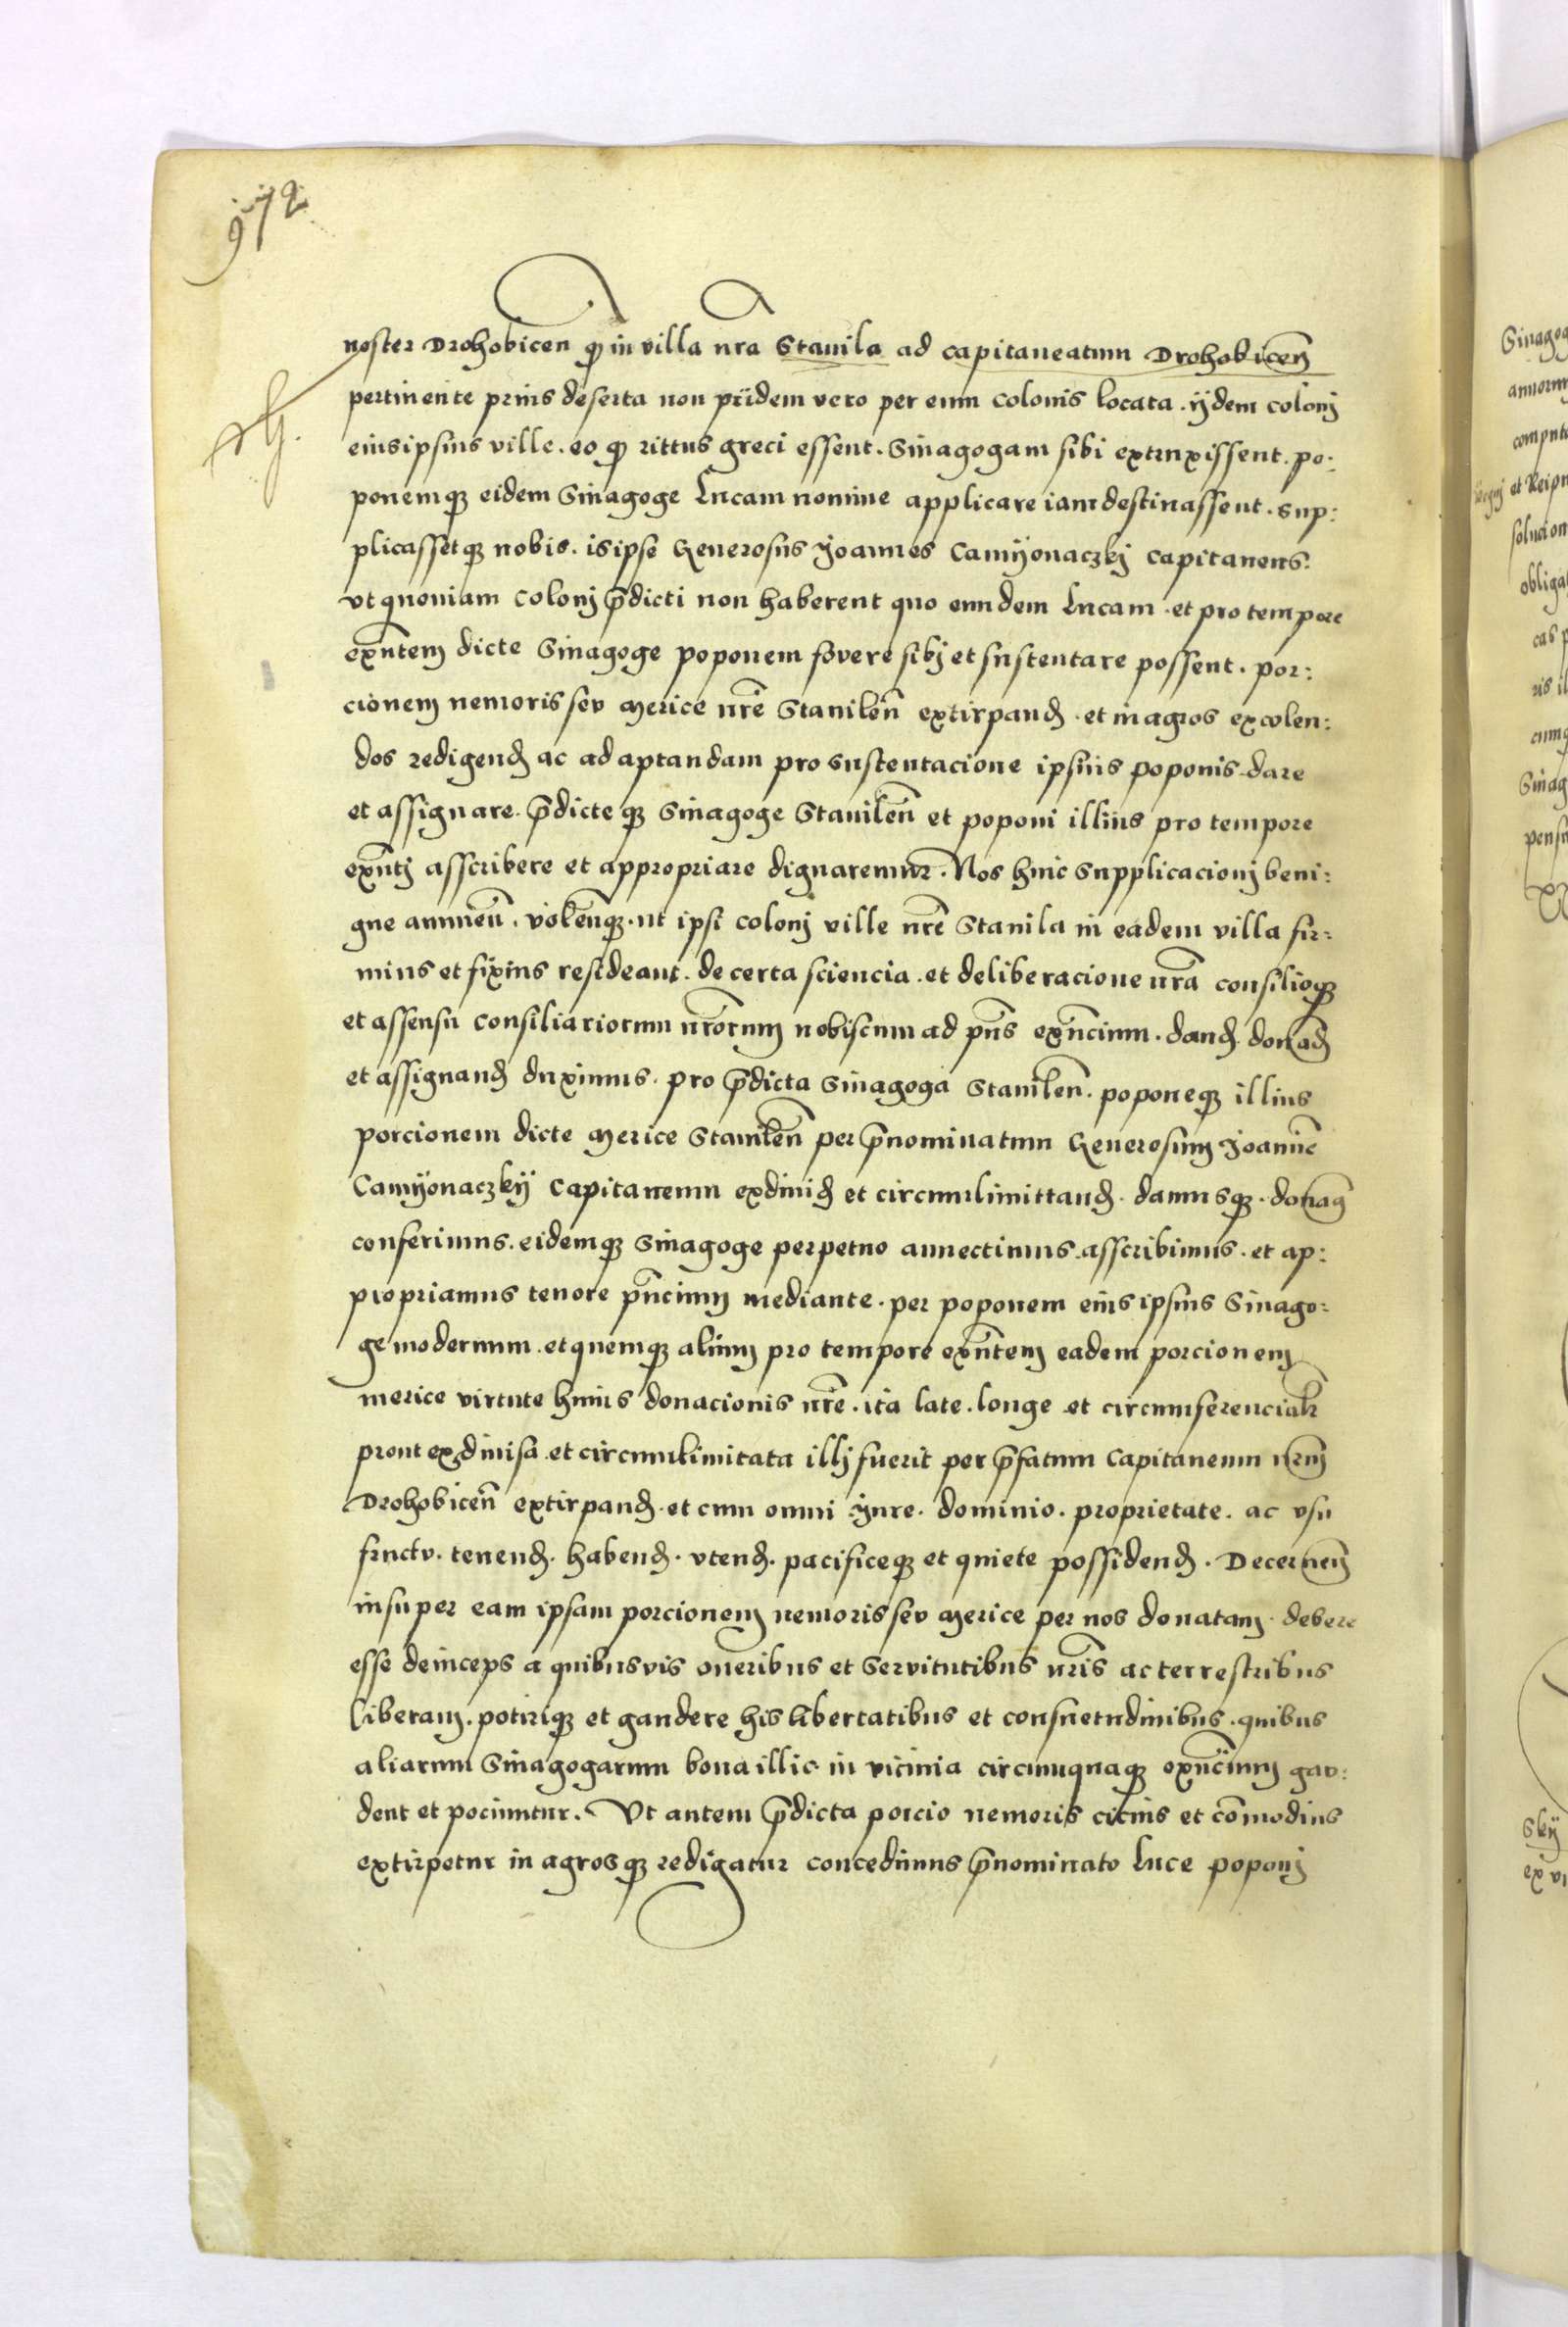 972
noster Drohobicen ꝙ in villa nra Stanila ad capitaneatum Drohobicen̄
pertinente prius deserta non pridem vero per eum colonis locata. ijdem colonj
eiusipsius ville. eo ꝙ rittus greci essent. Sinagogam sibi extruxissent. po:
ponemqꝫ eidem Sinagoge Lucam nomine applicare iam destinassent. sup:
plicassetqꝫ nobis. is ipse Generosus Joannes Camÿonaczkj capitaneus.
vt quoniam colonj p̄dicti non haberent quo eundem Lucam. et pro tempore
exn̄tem dicte Sinagoge poponem fovere sibj et sustentare possent. por:
cionem nemoris sev merice nr̄e Stanilen̄ extirpand̄. et in agros excolen:
dos redigend̄ ac adaptandam pro sustentacione ipsius poponis dare
et assignare. p̄dicteqꝫ Sinagoge Stanilen̄ et poponi illius pro tempore
exn̄tj asscribere et appropriare dignaremur. Nos huic supplicacionj beni:
gne annuen̄. volen̄qꝫ. ut ipsi colonj ville nr̄e Stanila in eadem villa fir:
mius et fixius resideant. de certa sciencia. et deliberacione nr̄a consilioqꝫ
et assensu consiliariorum nr̄orum nobiscum ad pn̄s exn̄cium. dand̄. donad̄
et assignand̄ duximus. pro p̄dicta Sinagoga Stanilen̄. poponeqꝫ illius
porcionem dicte merice Stanilen̄ per p̄nominatum Generosum Joannē
Camÿonaczkÿ Capitaneum exdiuid̄ et circumlimittand̄. damusqꝫ. donaq̄
conferimus. eidemqꝫ Sinagoge perpetuo annectimus asscribimus. et ap:
propriamus tenore pn̄cium mediante. per poponem eiusipsius Sinago:
ge modernum. et quemqꝫ alium pro tempore exn̄tem eadem porcionem
merice virtute huius donacionis nr̄e. ita late. longe et circumferencialr
prout exdiuisa. et circumlimitata illj fuerit per p̄fatum Capitaneum nrm̄
Drohobicen̄ extirpand̄. et cum omni iure. dominio. proprietate. ac vsu
fructv. tenend̄. habend̄. vtend̄. pacificeqꝫ et quiete possidend̄. Decernen̄
insuper eam ipsam porcionem nemoris sev merice per nos donatam. debere
esse deinceps a quibusvis oneribus et servitutibus nr̄is ac terrestribus
liberam. potirique et gaudere his libertatibus et consuetudinibus. quibus
aliarum Sinagogarum bona illic in vicinia circumquaqꝫ exn̄cium gav:
dent et pociuntur. Vt autem p̄dicta porcio nemoris citius et cōmodius
extirpetur in agrosqꝫ redigatur concedimus p̄nominato Luce poponj